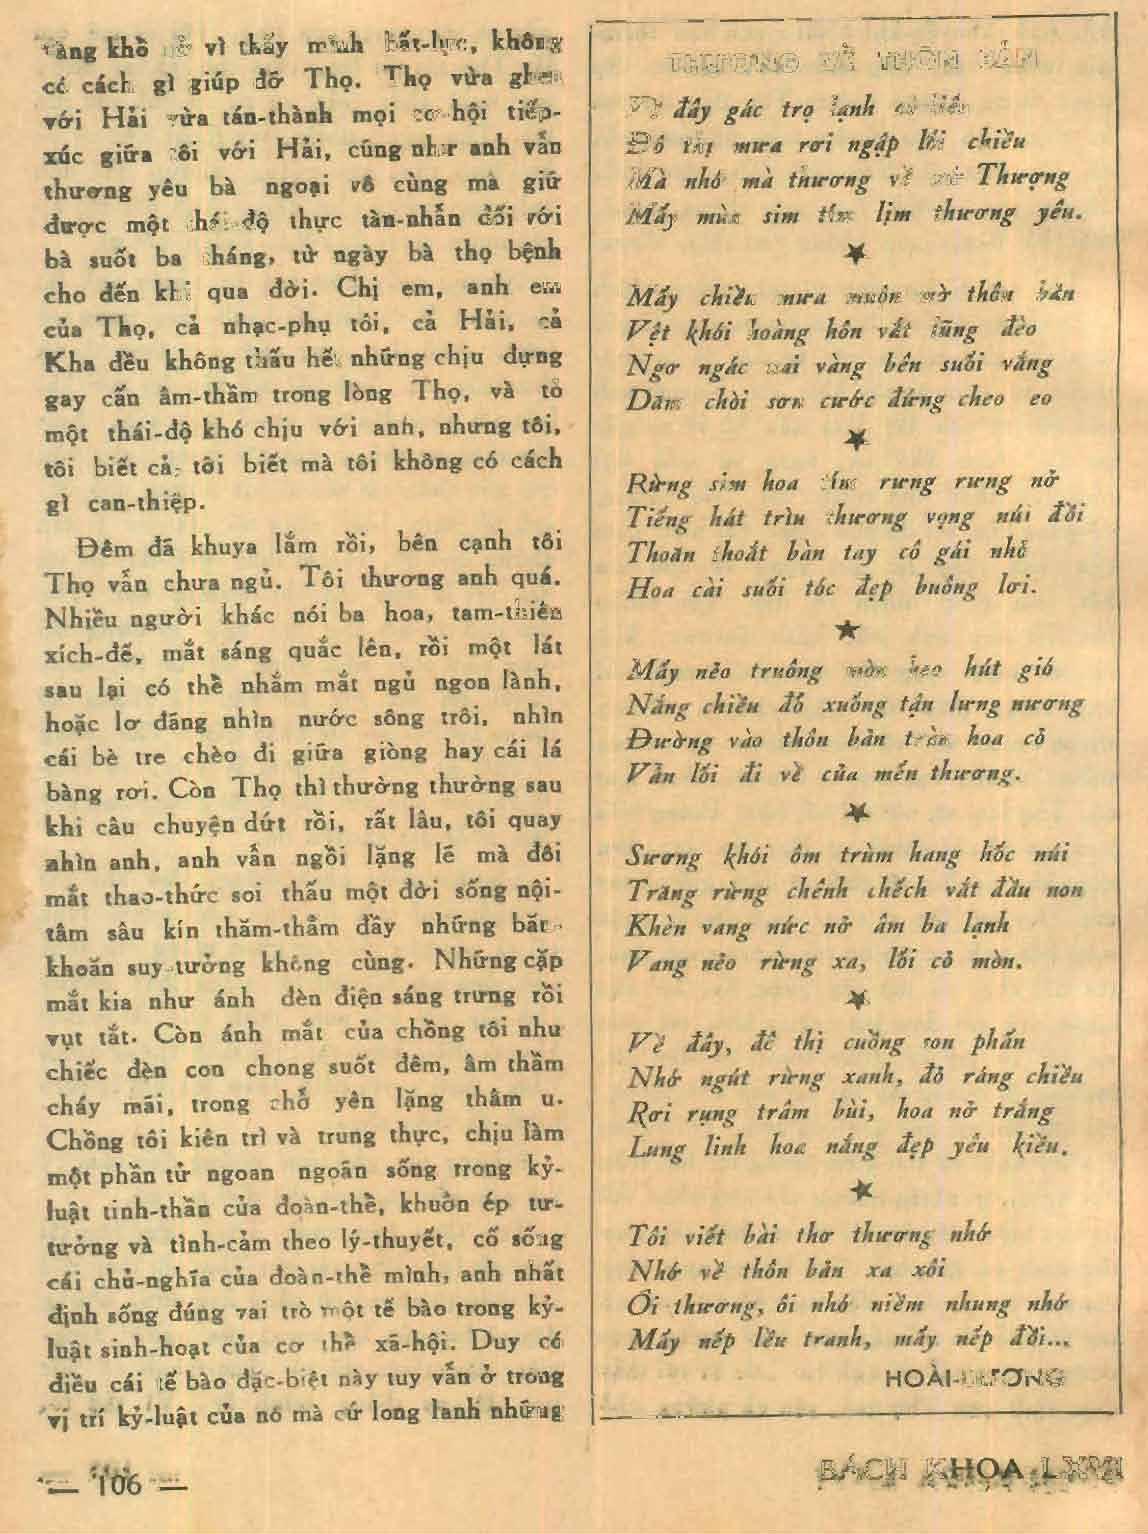 càng khổ sở vì thấy mình bất-lực, không
có cách gì giúp đỡ Thọ. Thọ vừa ghen
với Hải vừa tán-thành mọi cơ-hội tiếp-
xúc giữa tôi với Hải, cũng như anh vẫn
thương yêu bà ngoại vô cùng mà giữ
được một thái-độ thực tàn-nhẫn đối với
bà suốt ba tháng, từ ngày bà thọ bệnh
cho đến khi qua đời. Chị em, anh em
của Thọ, cả nhạc-phụ tôi, cả Hải, cả
Kha đều không thấu hết những chịu đựng
gay cấn âm-thầm trong lòng Thọ, và tỏ
một thái-độ khó chịu với anh, nhưng tôi,
tôi biết cả, tôi biết mà tôi không có cách
gì can-thiệp.
Đêm đã khuya lắm rồi, bên cạnh tôi
Thọ vẫn chưa ngủ. Tôi thương anh quá.
Nhiều người khác nói ba hoa, tam-thiên
xích-đế, mắt sáng quắc lên, rồi một lát
sau lại có thể nhắm mắt ngủ ngon lành,
hoặc lơ đãng nhìn nước sông trôi, nhìn
cái bè tre chèo đi giữa giòng hay cái lá
bàng rơi. Còn Thọ thì thường thường sau
khi câu chuyện dứt rồi, rất lâu, tôi quay
nhìn anh, anh vẫn ngồi lặng lẽ mà đôi
mắt thao-thức soi thấu một đời sống nội-
tâm sâu kín thăm-thẳm đầy những băn-
khoăn suy-tưởng không cùng. Những cặp
mắt kia như ánh đèn điện sáng trưng rồi
vụt tắt. Còn ánh mắt của chồng tôi như
chiếc đèn con chong suốt đêm, âm thầm
cháy mãi, trong chỗ yên lặng thâm u.
Chồng tôi kiên trì và trung thực, chịu làm
một phần tử ngoan ngoãn sống trong kỷ-
luật tinh-thần của đoàn-thể, khuôn ép tư-
tưởng và tình-cảm theo lý-thuyết, cố sống
cái chủ-nghĩa của đoàn-thể mình, anh nhất
định sống đúng vai trò một tế bào trong kỷ-
luật sinh-hoạt của cơ thể xã-hội. Duy có
điều cái tế bào đặc-biệt này tuy vẫn ở trong
vị trí kỷ-luật của nó mà cứ long lanh những
— 106 —
THƯƠNG VỀ THÔN BẢN
Về đây gác trọ lạnh cô liêu
Đô thị mưa rơi ngập lối chiều
Mà nhớ mà thương về Thượng
Mấy mùa sim tím lịm thương yêu.
★
Mấy chiều mưa muộn mờ thôn bản
Vệt khói hoàng hôn vắt lũng đèo
Ngơ ngác nai vàng bên suối vắng
Dăm chòi sơn cước đứng cheo eo
★
Rừng sim hoa tím rưng rưng nở
Tiếng hát trìu thương vọng núi đồi
Thoăn thoắt bàn tay cô gái nhỏ
Hoa cài suối tóc đẹp buông lơi.
★
Mấy nẻo truông mòn heo hút gió
Nắng chiều đổ xuống tận lưng nương
Đường vào thôn bản tràn hoa cỏ
Vẫn lối đi về của mến thương.
★
Sương khói ôm trùm hang hốc núi
Trăng rừng chênh chếch vắt đầu non
Khèn vang nức nở âm ba lạnh
Vang nẻo rừng xa, lối cỏ mòn.
★
Về đây, đô thị cuồng son phấn
Nhớ ngút rừng xanh, đỏ ráng chiều
Rơi rụng trâm bùi, hoa nở trắng
Lung linh hoa nắng đẹp yêu kiều.
★
Tôi viết bài thơ thương nhớ
Nhớ về thôn bản xa xôi
Ôi thương, ôi nhớ niềm nhung nhớ
Mấy nếp lều tranh, mấy nếp đồi...
HOÀI-HƯƠNG
BÁCH KHOA LXVII